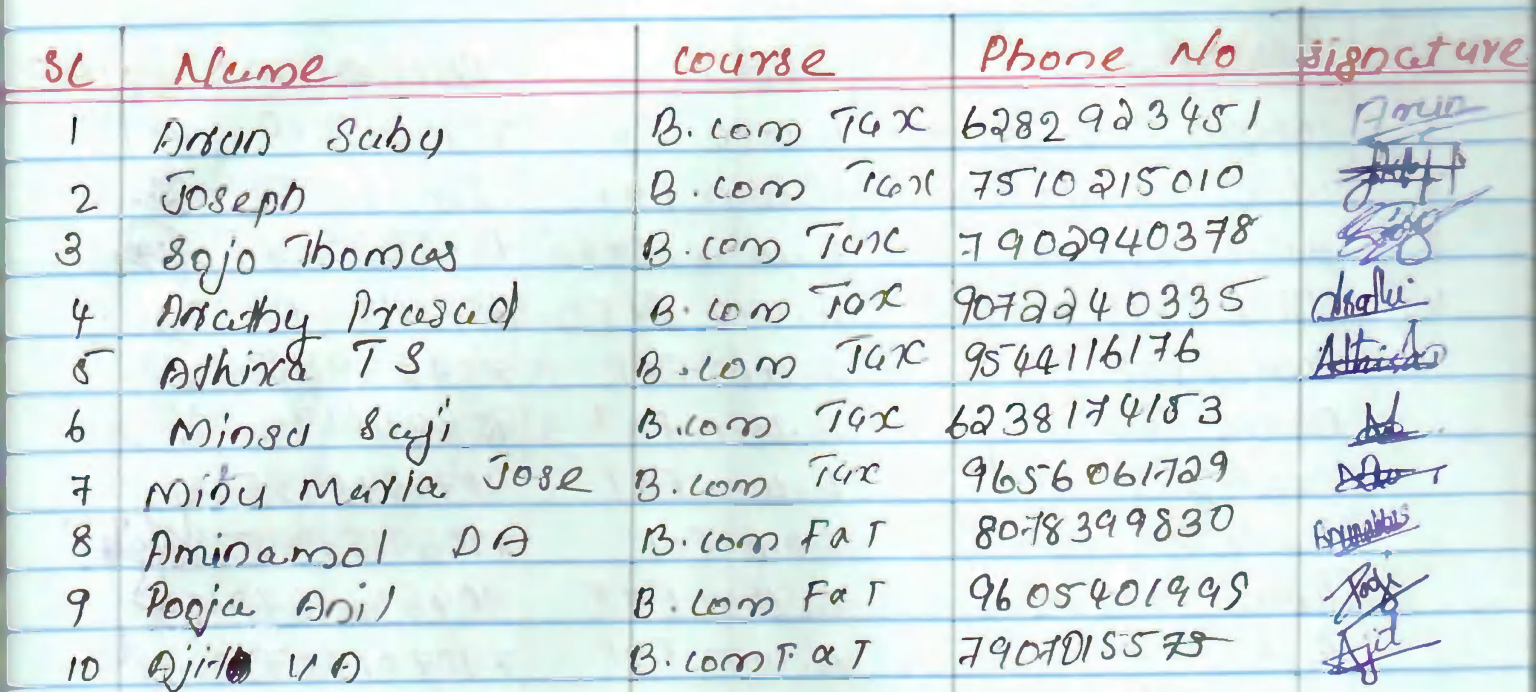 SL Name Course Phone No Signature
1 Arun Sabu B.com Tax 6282923451 Arun
2 Joseph B.com Tax 7510215010
3 Sojo Thomas B.com Tax 7902940378
4 Arathy Prasad B.com Tax 9072240335
5 Athira TS B.com Tax 9544116176 Athira
6 Minsa Saji B.com Tax 6238174153
7 Minu Maria Jose B.com Tax 9656061729
8 Aminamol DA B.com F&T 8078399830
9 Pooja Anil B.com F&T 9605401995 Pooja
10 VA B.com F&T 7907015575 Ajit